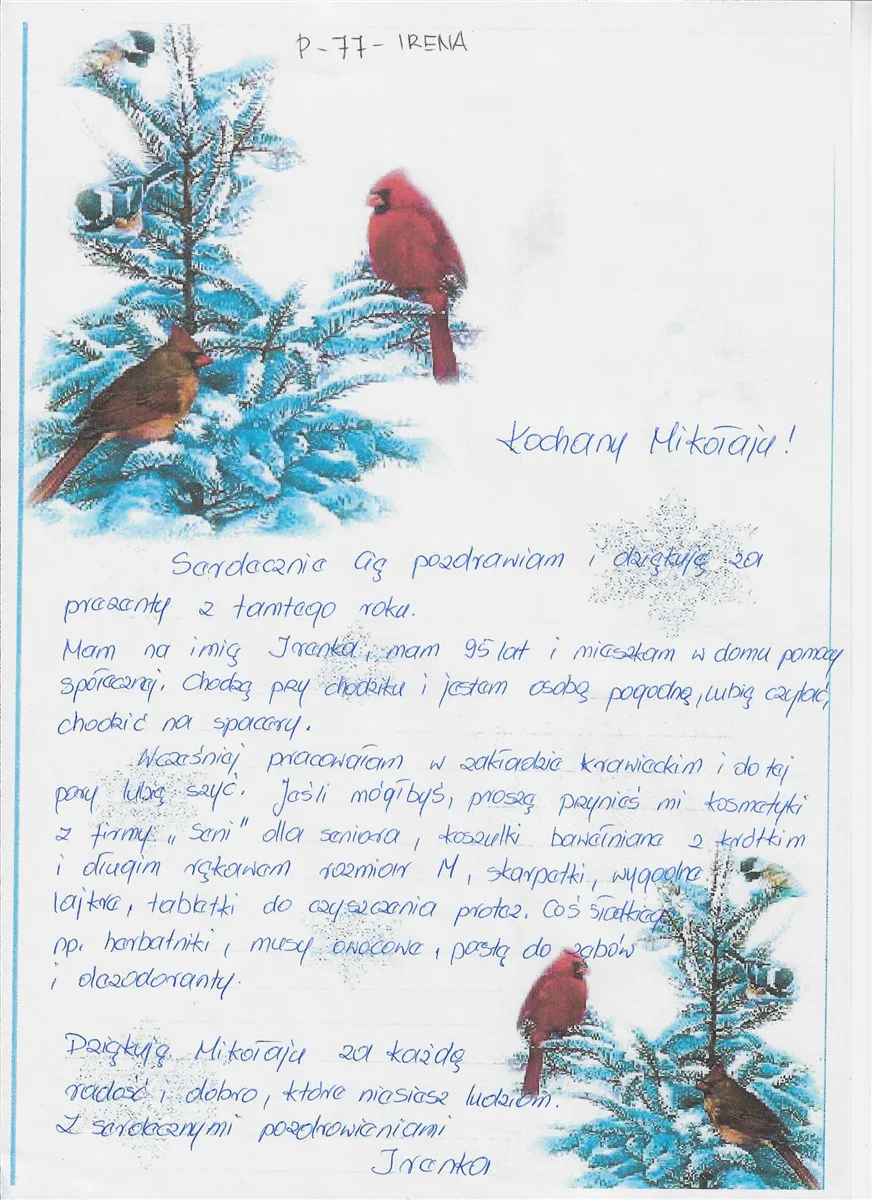 P-77-IRENA
Kochany Mikołaju!
Serdecznie Cię pozdrawiam i dziękuję za
prezenty z tamtego roku.
Mam na imię Irenka, mam 95 lat i mieszkam w domu pomocy
społecznej. Chodzę przy chodziku i jestem osobą pogodną, lubię czytać,
chodzić na spacery.
Wcześniej pracowałam w zakładzie krawieckim i do tej
pory lubię szyć. Jeśli mógłbyś, proszę przynieś mi kosmetyki
z firmy "Seni" dla seniora, koszulki bawełniane z krótkim
i długim rękawem rozmiar M, skarpetki, wygodne
lajkre, tabletki do czyszczenia protez. Coś słodkiego
np. herbatniki, musy owocowe, pastę do zębów
i dezodoranty.
Dziękuję Mikołaju za każdą
radość i dobro, które niesiesz ludziom.
Z serdecznymi pozdrowieniami
Irenka